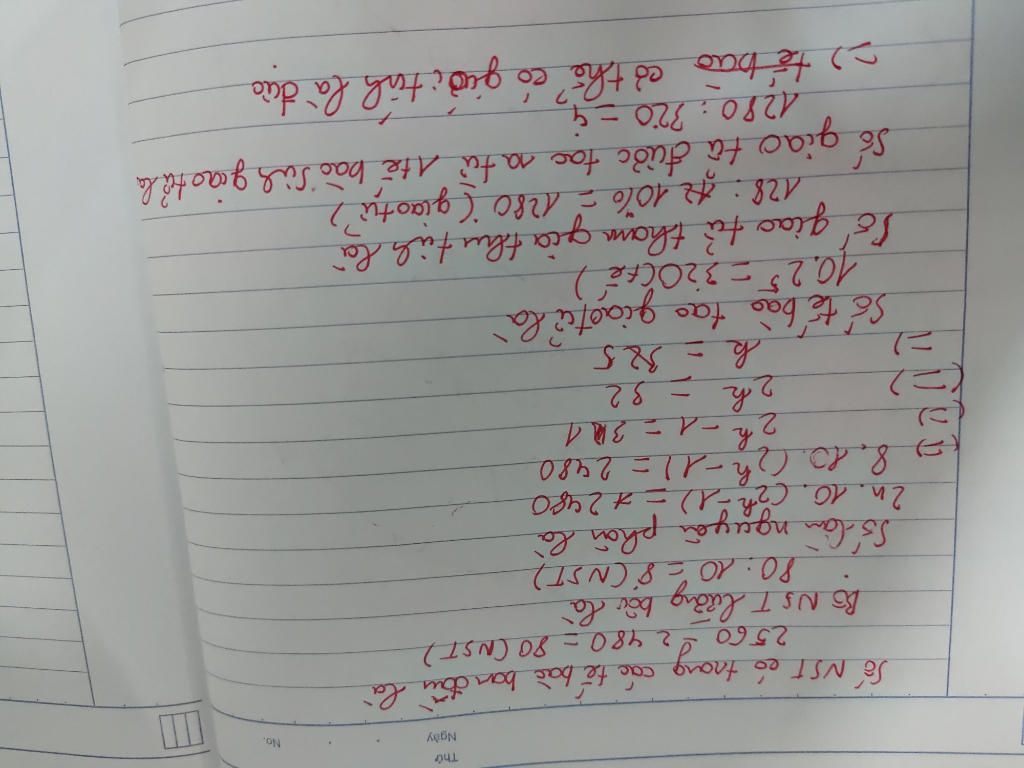 Thứ
Ngày
No.
Số NST có trong các tế bào ban đầu là
2560 - 2480 = 80 (NST)
Bộ NST lưỡng bội là
80 : 10 = 8 (NST)
Số lần nguyên phân là
2n. 10. (2^k - 1) = 2480
(=) 8. 10. (2^k - 1) = 2480
(=) 2^k - 1 = 31
(=) 2^k = 32
=) k = 5
Số tế bào tạo giao tử là
10.2^5 = 320 (tế)
Số giao tử tham gia thụ tinh là
128 : 10% = 1280 (giao tử)
Số giao tử được tạo ra từ 1 tế bào sinh giao tử là
1280 : 320 = 4
=) tế bào cơ thể có giới tính là đực